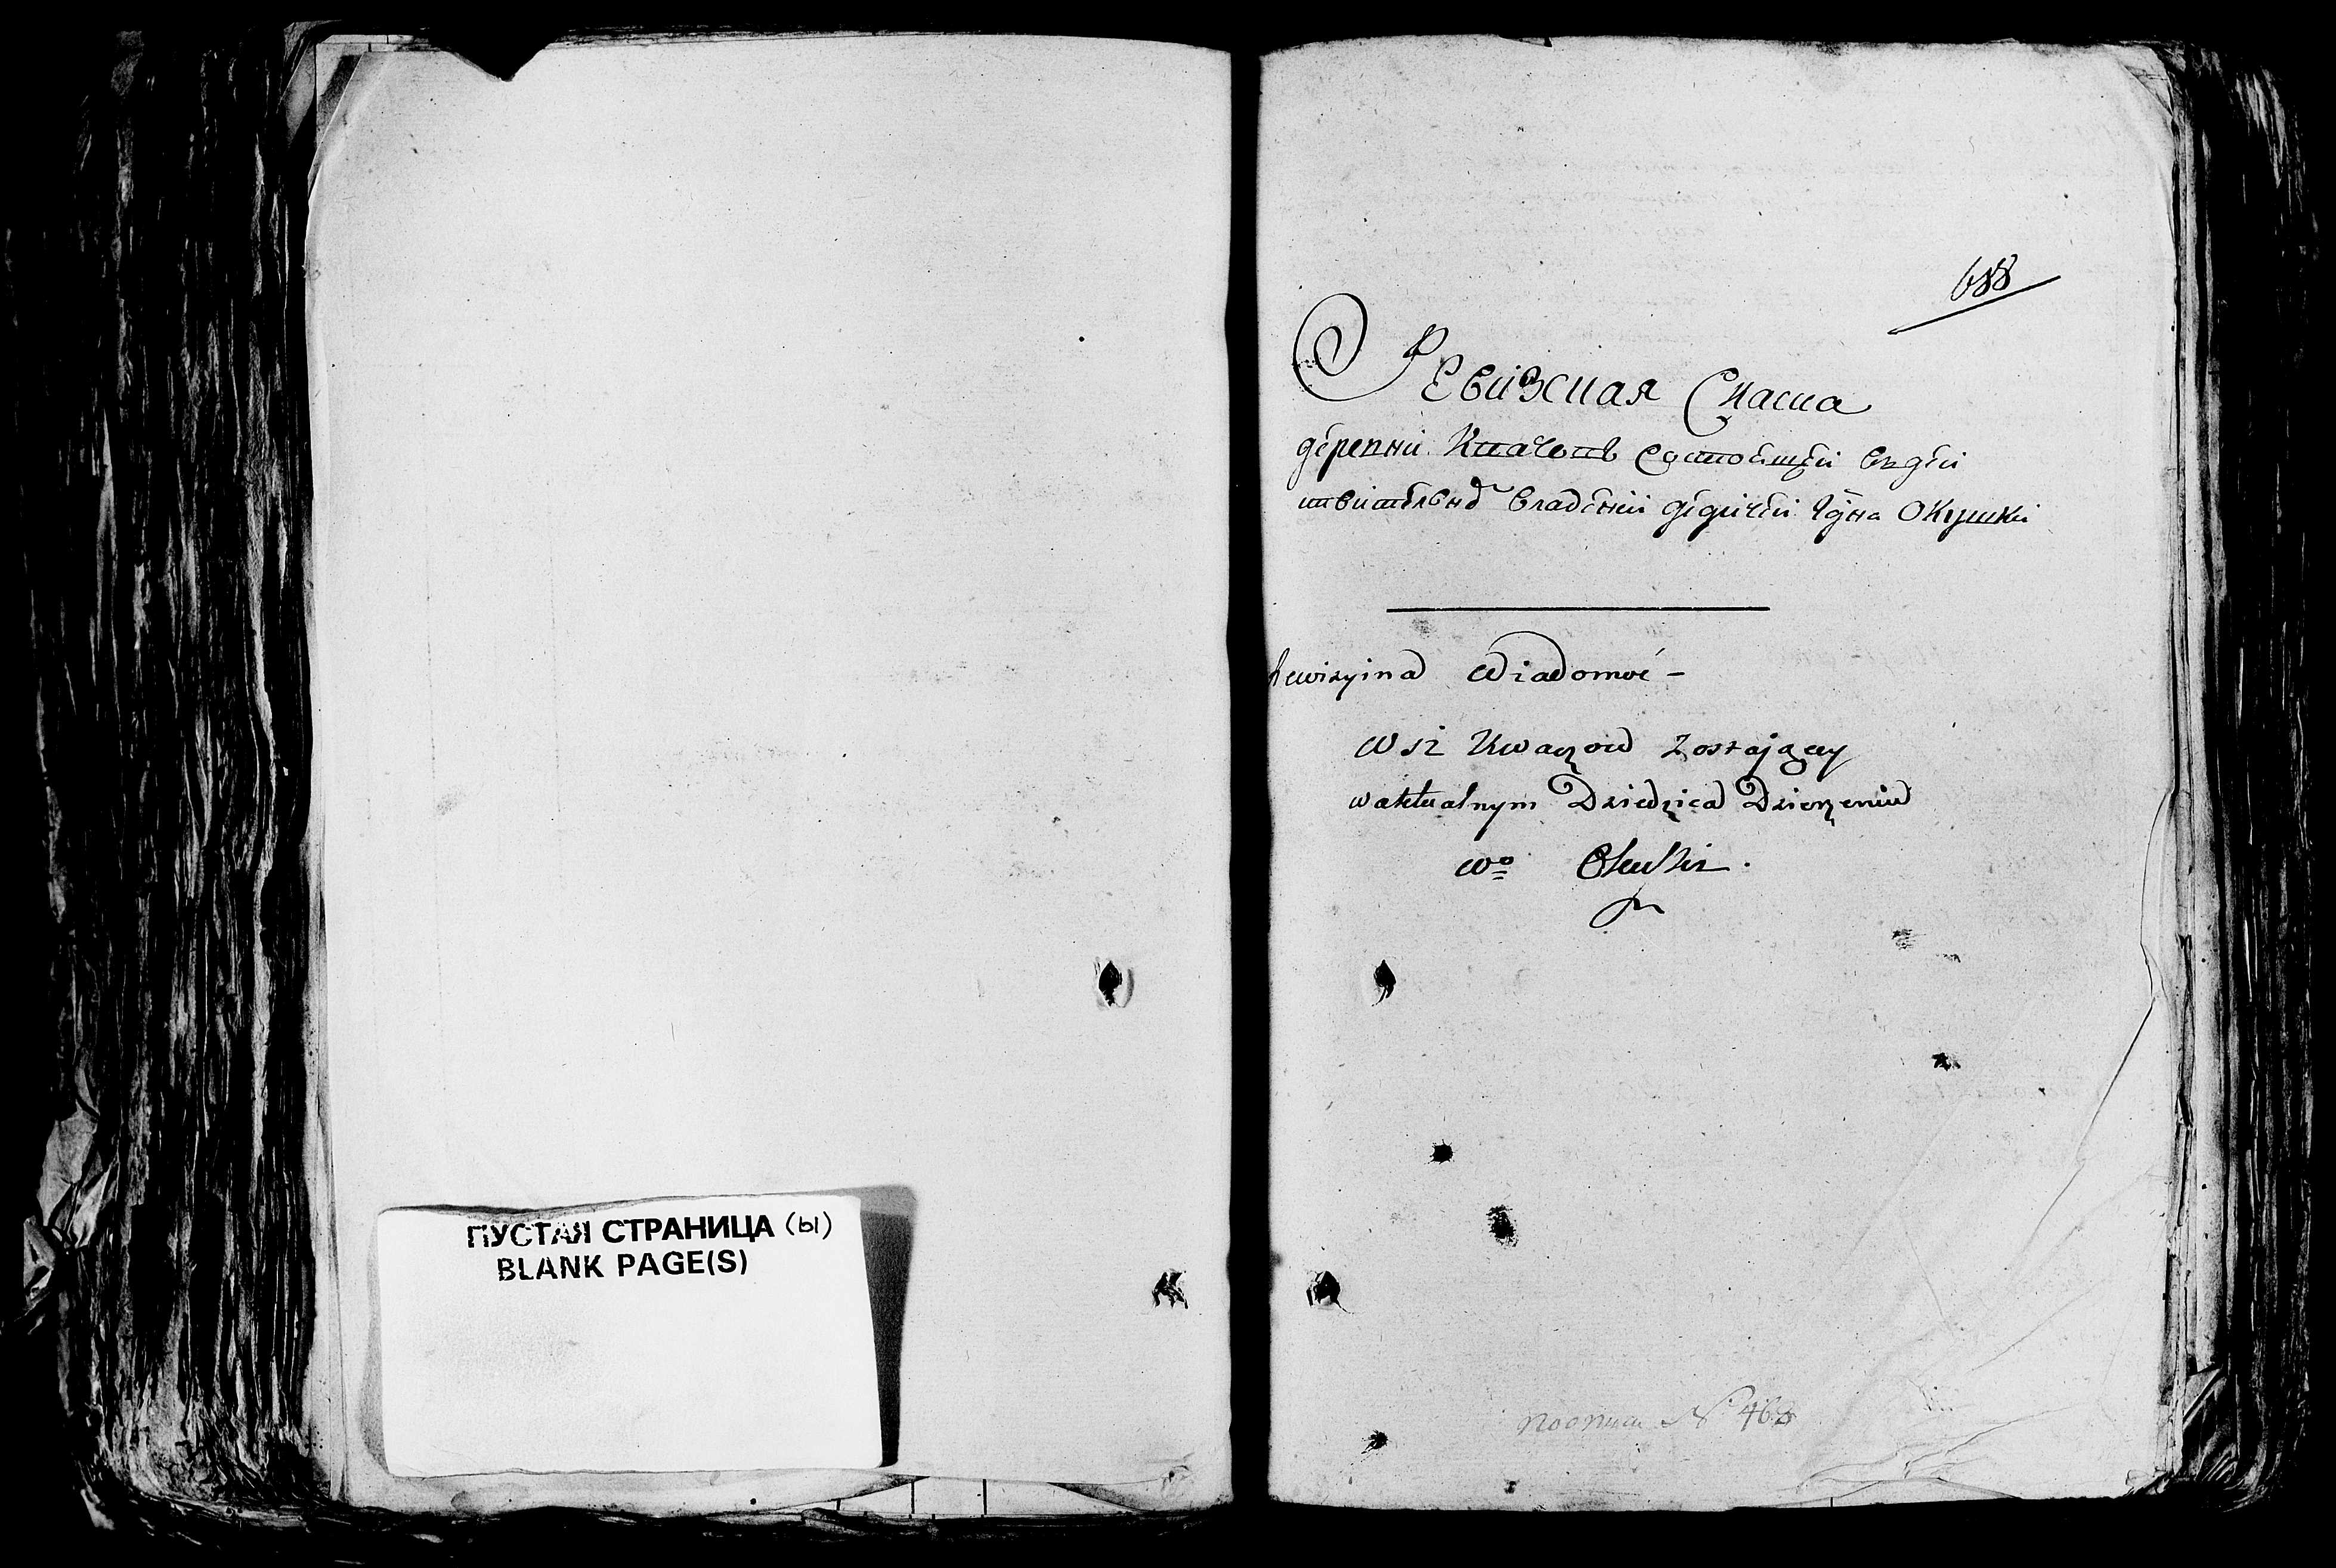 ПУСТАЯ СТРАНИЦА (ы)
BLANK PAGE(S)
688
Ревизская Сказка
деревни Квачовъ состоящей въ дей
ствительно владении дедичей Окушки
Rewizyina Wiadomość
Wsi Kwaczow Zostaiącey
w aktualnym Dziedzica Dzierzeniu
Wo Okuszki.
№ 463